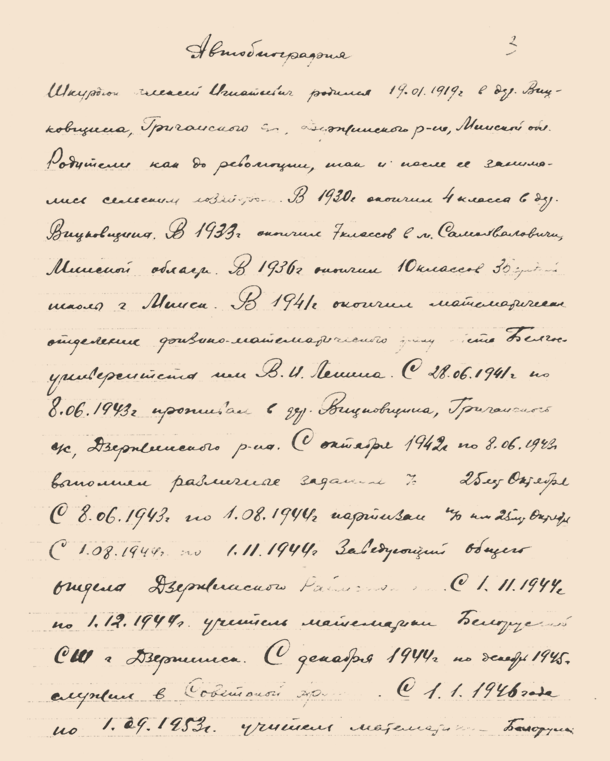 Автобиография 3
Шкурдюк Алексей Игнатьевич родился 19.01.1919г в дер. Виц-
ковщина, Гричанского с/с, Дзержинского р-на, Минской обл.
Родители как до революции, так и после ее занима-
лись сельским хозяйством. В 1930г окончил 4 класса в дер.
Вицковщина. В 1933г окончил 7 классов в м. Самохваловичи,
Минской области. В 1936г окончил 10 классов 30
школы г Минск. В 1941г окончил математическое
отделение физико-математического факультета Белгос-
университета им В.И. Ленина. С 28.06.1941г по
8.06.1943г проживал в дер. Вицковщина, Гричанского
с/с, Дзержинского р-на. С октября 1942г по 8.06.1943г
выполнял различные задания 25лет Октября
С 8.06.1943г по 1.08.1944г партизан п/о им 25лет Октября
С 1.08.1944г по 1.11.1944г Заведующий общего
отдела Дзержинского С 1.11.1944г
по 1.12.1944г. учитель математики Белорусской
СШ г Дзержинск. С декабря 1944г по декабрь 1945г
служил в Советской армии. С 1.1.1946 года
по 1.09.1953г. учитель математики Белорусск